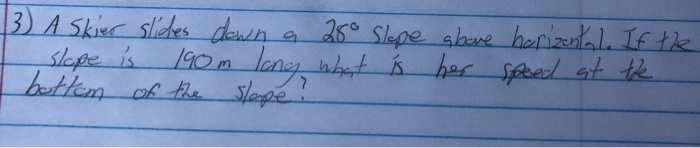 3) A Skier slides down a 28° Slope above horizontal. If the
slope is 190m long what is her speed at the
bottom of the slope?